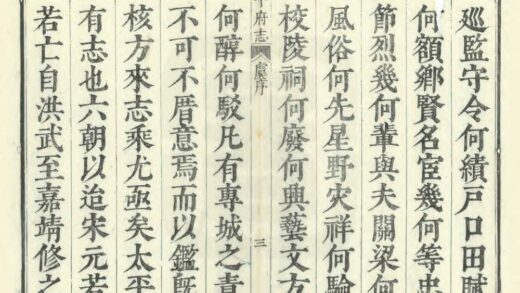 廵監守令何績戶口田賦
何額鄕賢名宦幾何等忠
節烈幾何輩與夫關梁何
風俗何先星野灾祥何驗
校陵祠何廢何興藝文方
府志 虞序 三
何醇何駁凡有專城之責
不可不厝意焉而以鑑旣
核方來志乘尤亟矣太平
有志也六朝以迨宋元若
若亡自洪武至嘉靖修之